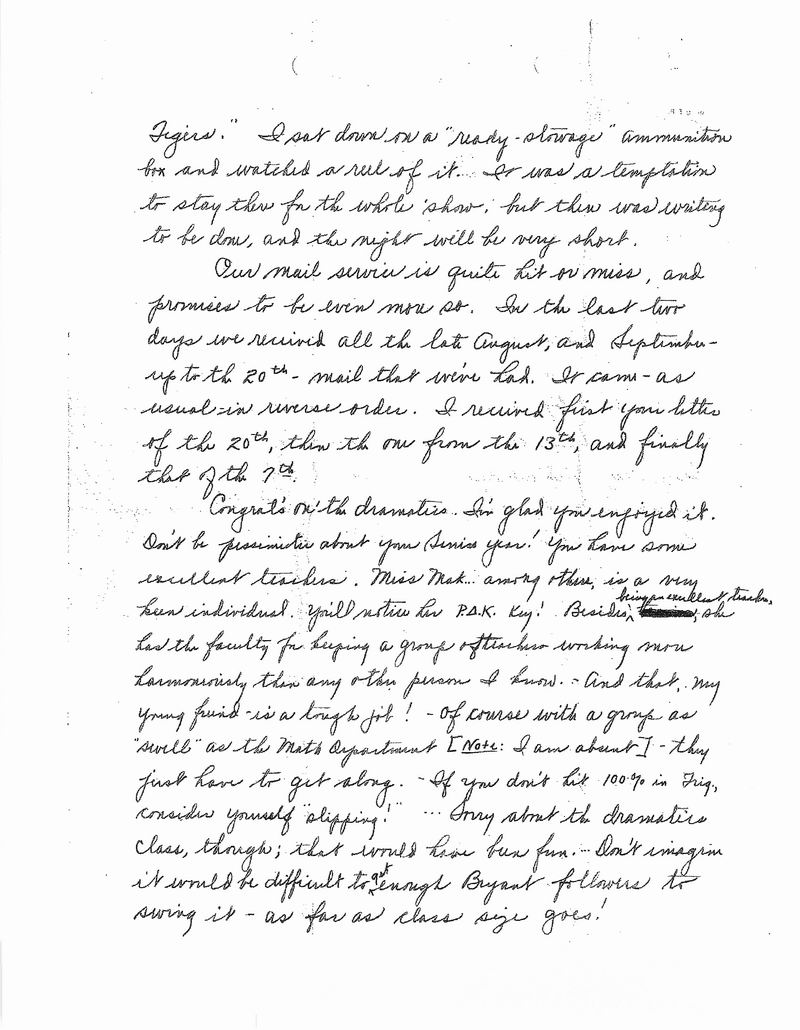 Tigers." I sat down on a "ready-stowage" ammunition
box and watched a reel of it. It was a temptation
to stay there for the whole show, but there was writing
to be done, and the night will be very short.
Our mail service is quite hit or miss, and
promises to be even more so. In the last two
days we received all the late August, and September-
up to the 20th - mail that we've had. It came - as
usual - in reverse order. I received first your letter
of the 20th, then the one from the 13th, and finally
that of the 7th.
Congrat's on the dramatics. I'm glad you enjoyed it.
Don't be pessimistic about your Senior year! You have some
excellent teachers. Miss Mak... among others, is a very
keen individual. You'll notice her P.D.K. Key! Besides, being an excellent teacher, she
has the faculty for keeping a group of teachers working more
harmoniously than any other person I know. - And that, my
young friend - is a tough job! - Of course with a group as
"swell" as the Math Department [Note: I am absent] - they
just have to get along. - If you don't hit 100% in Trig,
consider yourself "slipping!" ... Sorry about the dramatics
class, though; that would have been fun. - Don't imagine
it would be difficult to get enough Bryant followers to
swing it - as far as class size goes!